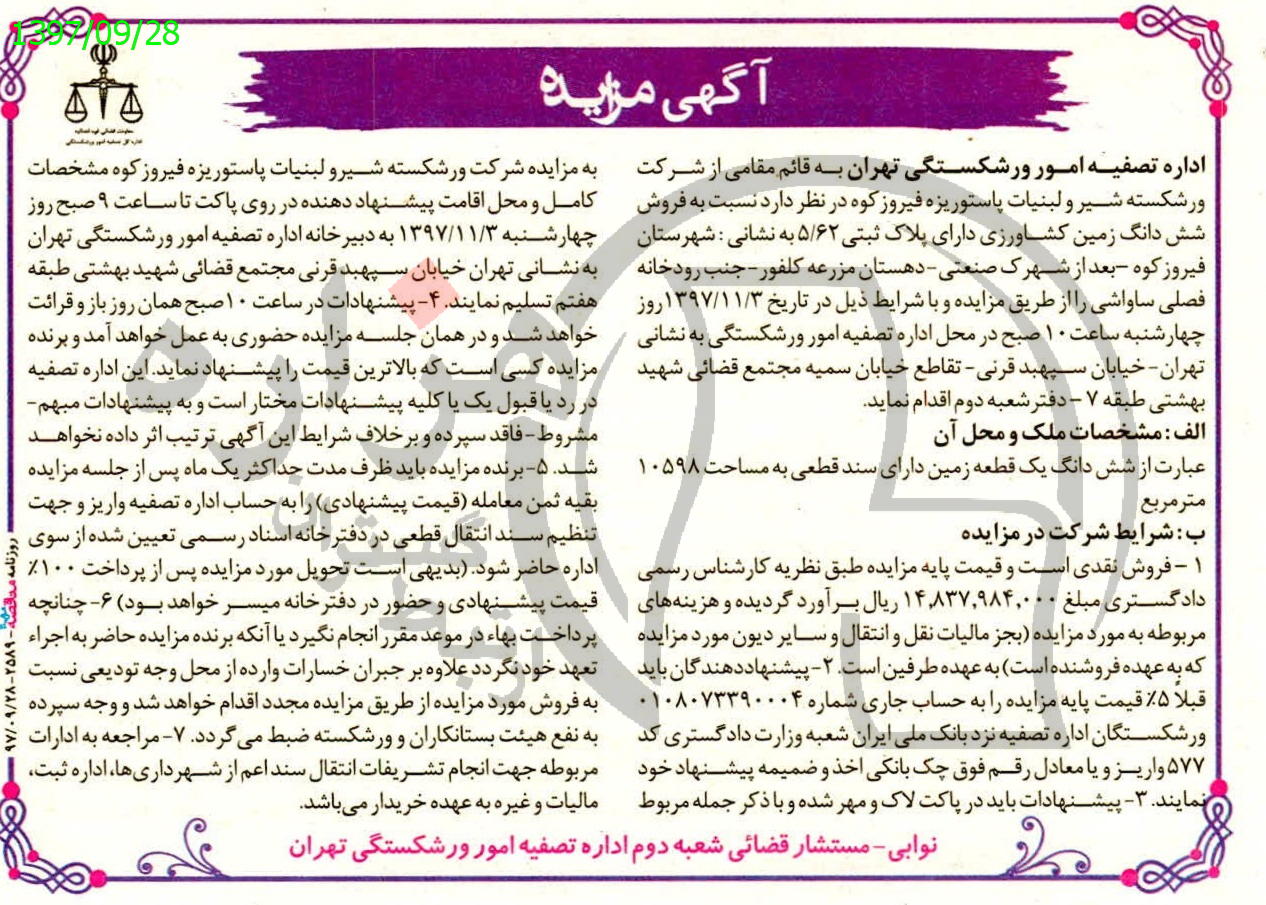 1397/09/28
آگهی مزایده
معاونت قضائی قوه قضائیه
اداره کل تصفیه امور ورشکستگی
اداره تصفیه امور ورشکستگی تهران به قائم مقامی از شرکت
ورشکسته شیر و لبنیات پاستوریزه فیروز کوه در نظر دارد نسبت به فروش
شش دانگ زمین کشاورزی دارای پلاک ثبتی ۵/۶۲ به نشانی : شهرستان
فیروز کوه –بعد از شهرک صنعتی-دهستان مزرعه کلفور-جنب رودخانه
فصلی ساواشی را از طریق مزایده و با شرایط ذیل در تاریخ ۱۳۹۷/۱۱/۳ روز
چهارشنبه ساعت ۱۰ صبح در محل اداره تصفیه امور ورشکستگی به نشانی
تهران-خیابان سپهبد قرنی- تقاطع خیابان سمیه مجتمع قضائی شهید
بهشتی طبقه ۷ – دفتر شعبه دوم اقدام نماید.
الف: مشخصات ملک و محل آن
عبارت از شش دانگ یک قطعه زمین دارای سند قطعی به مساحت ۱۰۵۹۸
مترمربع
ب: شرایط شرکت در مزایده
۱ – فروش نقدی است و قیمت پایه مزایده طبق نظریه کارشناس رسمی
دادگستری مبلغ ۱۴,۸۳۷,۹۸۴,۰۰۰ ریال برآورد گردیده و هزینه‌های
مربوطه به مورد مزایده (بجز مالیات نقل و انتقال و سایر دیون مورد مزایده
که به عهده فروشنده است) به عهده طرفین است. ۲- پیشنهاددهندگان باید
قبلاً ۵٪ قیمت پایه مزایده را به حساب جاری شماره ۰۱۰۸۰۷۳۳۹۰۰۰۴
ورشکستگان اداره تصفیه نزد بانک ملی ایران شعبه وزارت دادگستری کد
۵۷۷ واریز و یا معادل رقم فوق چک بانکی اخذ و ضمیمه پیشنهاد خود
نمایند. ۳- پیشنهادات باید در پاکت لاک و مهر شده و با ذکر جمله مربوط
به مزایده شرکت ورشکسته شیر و لبنیات پاستوریزه فیروز کوه مشخصات
کامل و محل اقامت پیشنهاد دهنده در روی پاکت تا ساعت ۹ صبح روز
چهارشنبه ۱۳۹۷/۱۱/۳ به دبیرخانه اداره تصفیه امور ورشکستگی تهران
به نشانی تهران خیابان سپهبد قرنی مجتمع قضائی شهید بهشتی طبقه
هفتم تسلیم نمایند. ۴- پیشنهادات در ساعت ۱۰ صبح همان روز باز و قرائت
خواهد شد و در همان جلسه مزایده حضوری به عمل خواهد آمد و برنده
مزایده کسی است که بالاترین قیمت را پیشنهاد نماید. این اداره تصفیه
در رد یا قبول یک یا کلیه پیشنهادات مختار است و به پیشنهادات مبهم-
مشروط-فاقد سپرده و برخلاف شرایط این آگهی ترتیب اثر داده نخواهد
شد. ۵- برنده مزایده باید ظرف مدت حداکثر یک ماه پس از جلسه مزایده
بقیه ثمن معامله (قیمت پیشنهادی) را به حساب اداره تصفیه واریز و جهت
تنظیم سند انتقال قطعی در دفترخانه اسناد رسمی تعیین شده از سوی
اداره حاضر شود. (بدیهی است تحویل مورد مزایده پس از پرداخت ۱۰۰٪
قیمت پیشنهادی و حضور در دفترخانه میسر خواهد بود) ۶- چنانچه
پرداخت بهاء در موعد مقرر انجام نگیرد یا آنکه برنده مزایده حاضر به اجراء
تعهد خود نگردد علاوه بر جبران خسارات وارده از محل وجه تودیعی نسبت
به فروش مورد مزایده از طریق مزایده مجدد اقدام خواهد شد و وجه سپرده
به نفع هیئت بستانکاران و ورشکسته ضبط می گردد. ۷- مراجعه به ادارات
مربوطه جهت انجام تشریفات انتقال سند اعم از شهرداری‌ها، اداره ثبت،
مالیات و غیره به عهده خریدار می‌باشد.
نوابی-مستشار قضائی شعبه دوم اداره تصفیه امور ورشکستگی تهران
روزنامه مناقصه مزایده - ۲۵۸۹-۹۷/۰۹/۲۸
هزاره